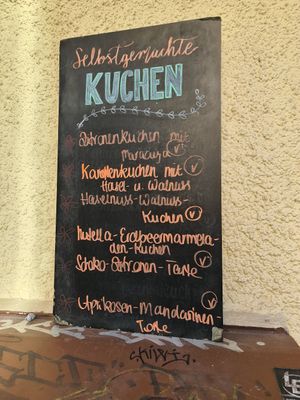 Selbstgemachte
KUCHEN
Zitronenkuchen mit
Maracuja V
Karottenkuchen mit
Hasel- u. Walnuss V
Haselnuss-Walnuss-
Kuchen V
Nutella-Erdbeermarmela-
den-Kuchen V
Schoko-Zitronen-Tarte
Aprikosen-Mandarinen- V
Tarte